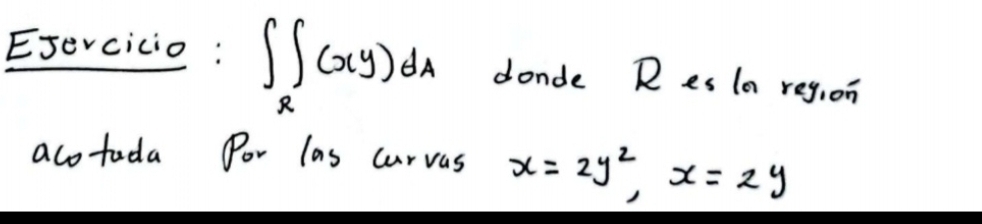 Ejercicio : ∬_R (xy) dA donde R es la región
acotada Por las curvas x = 2y², x = 2y